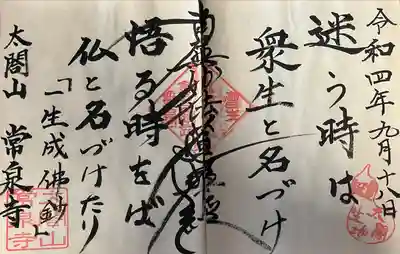 令和四年九月十八日
迷う時は
衆生と名づけ
南無妙法蓮華経
悟る時をば
仏と名づけたり
「一生成佛鈔」
太閤山 常泉寺